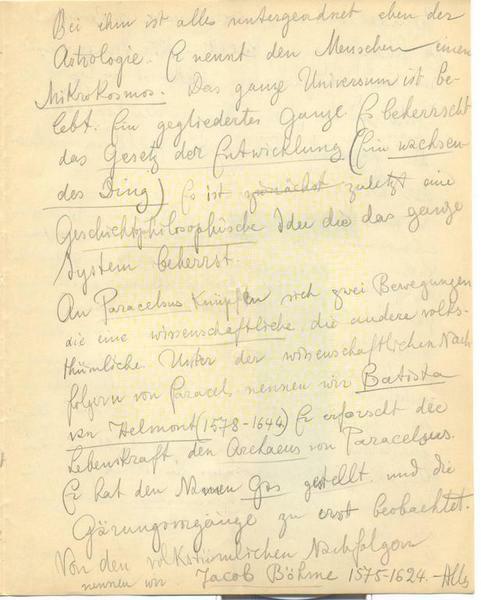 Bei ihm ist alles untergeordnet eben der
Astrologie. Er nennt den Menschen einen
Mikrokosmos. Das ganze Universum ist be-
lebt. Ein gegliedertes Ganze Es beherrscht
das Gesetz der Entwicklung (Ein wachsen-
des Ding) Es ist zunächst zuletzt eine
Geschichtsphilosophische Idee die das ganze
System beherrst.
An Paracelsus Knüpfen sich zwei Bewegungen
die eine wissenschaftliche die andere volks-
thümliche. Unter der wissenschaftlichen Nach
folgern von Paracels nennen wir Batista
van Helmont (1578-1644) Er erforscht die
Lebenskraft, den Archaeus von Paracelsus.
Er hat den Namen Gas gestellt und die
Gärungsvorgänge zu erst beobachtet.
Von den volkstümlichen Nachfolgern
nennen wir Jacob Böhme 1575-1624. - Alles